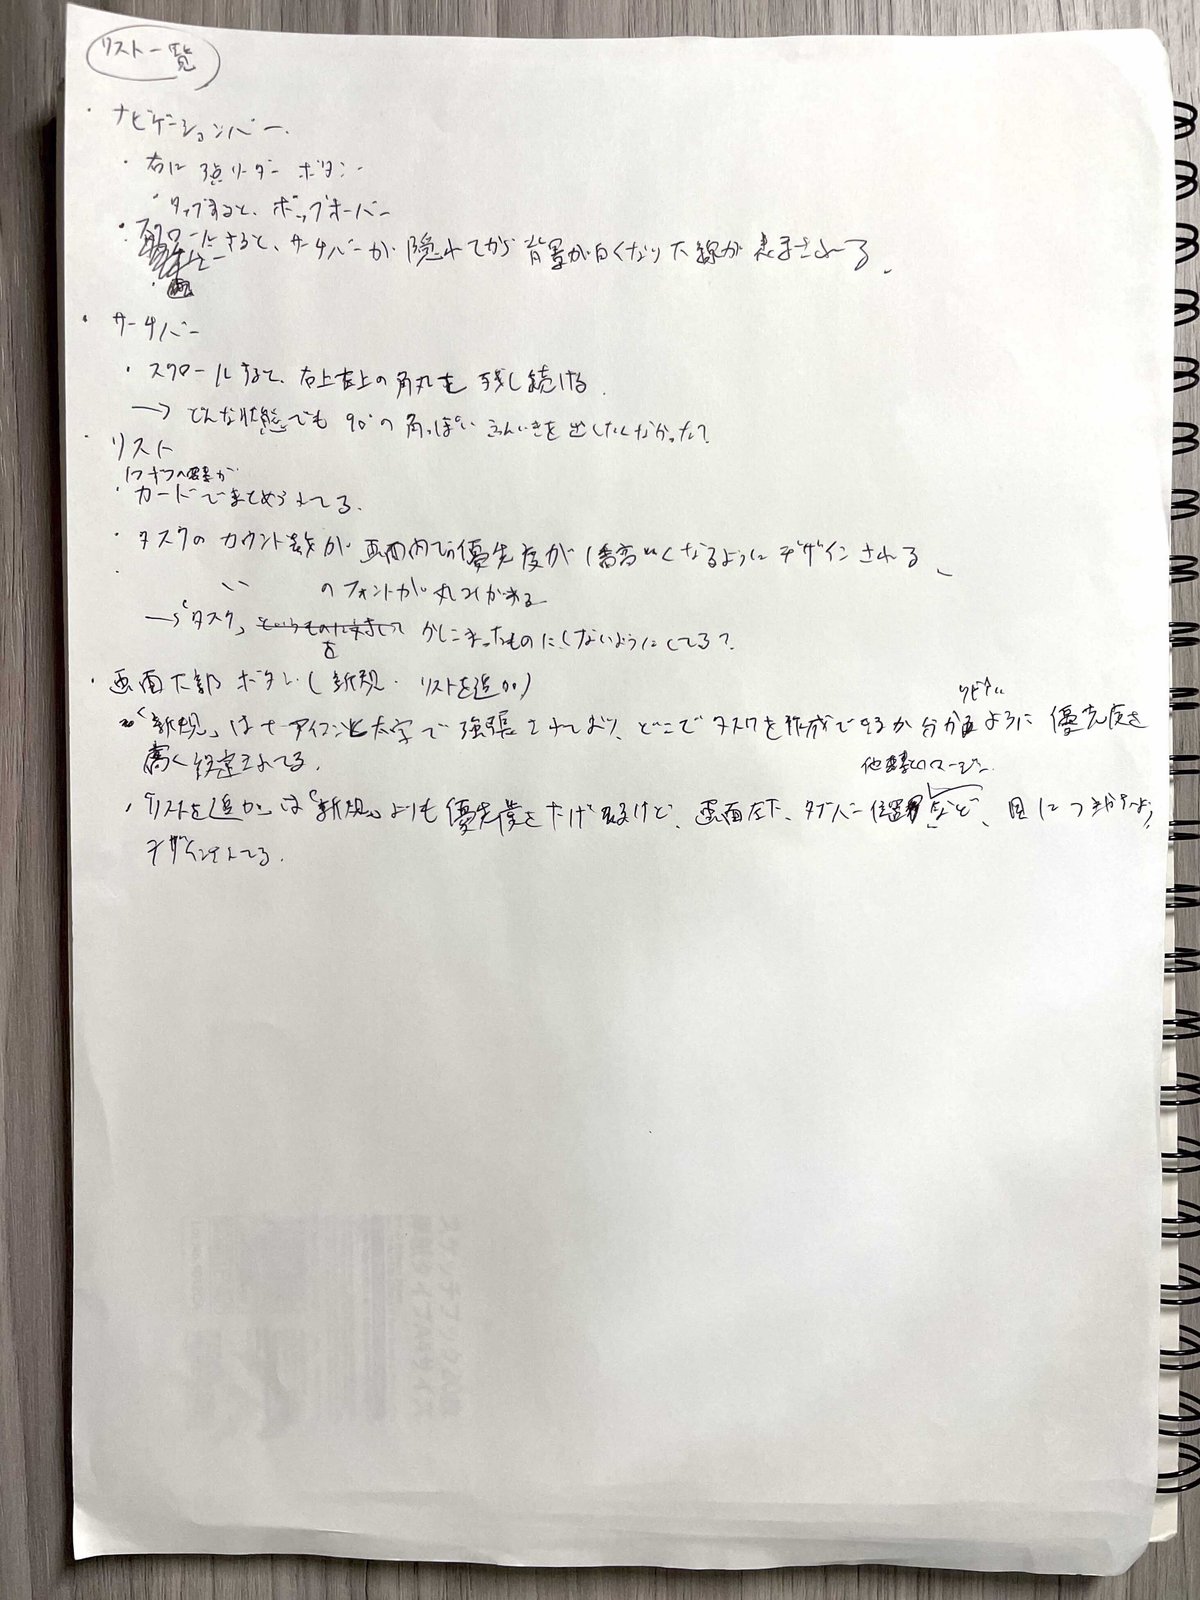 リスト一覧
・ナビゲーションバー
・右に3点リーダー ボタン
・タップすると、ポップオーバー
・スクロールすると、サーチバーが隠れてから背景が白くなり下線が表示される、
・サーチバー
・スクロールすると、右上左上の角丸を残し続ける
→ どんな状態でも90°の角っぽいふんいきを出したくなかった?
・リスト
1つ1つの要素が
・カードでまとめられてる。
・タスクのカウント数が画面内で優先度が1番高くなるようにデザインされる、
・〃 のフォントが丸みがある
→「タスク」をかしこまったものにしないようにしてる?
・画面下部ボタン(新規・リストを追加)
・「新規」は+アイコンと太字で強調されており、どこでタスクを作成できるか分かるように優先度を
高く設定されてる。
他要素のマージン
・「リストを追加」は「新規」よりも優先度を下げてるけど、画面左下、タブバー位置など、目につきやすいよう
デザインされてる。